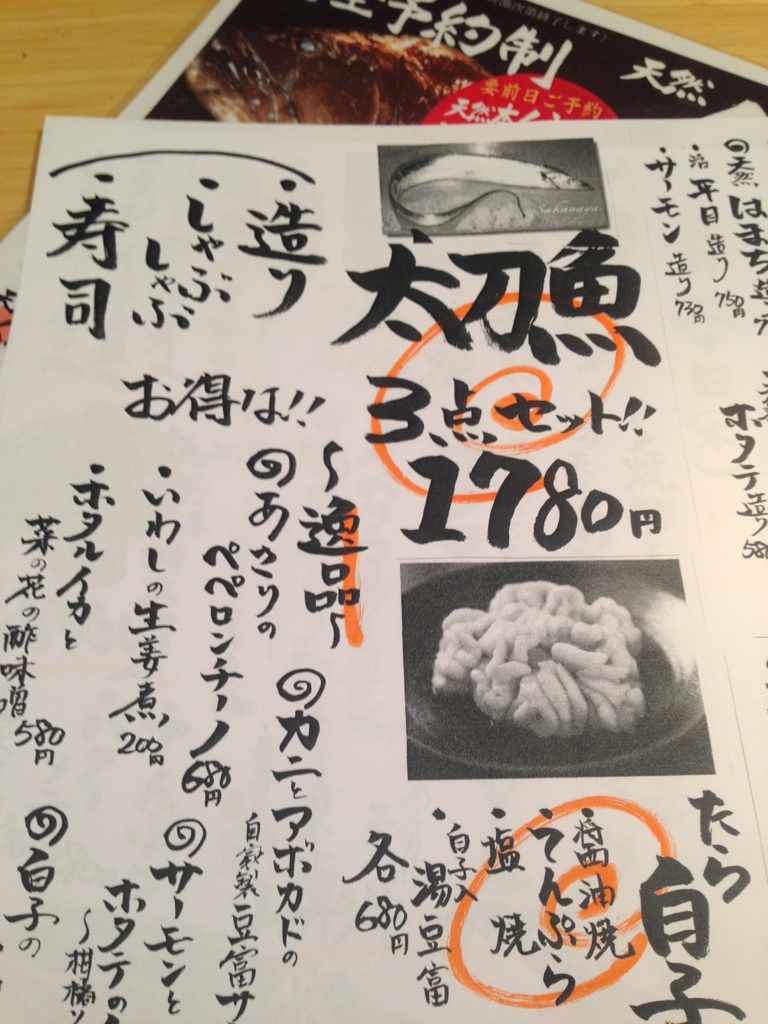 予約制
天然
要前日ご予約
◎天然はまち造り
・沼平目造り750円
サーモン造り730円
ホタテ造り580
Sakanaya
太刀魚
3点セット!!
1780円
・造り
・しゃぶしゃぶ
・寿司
お得な!!
たら白子
・醤油焼
・てんぷら
・塩焼
・白子入湯豆富
各680円
〜逸品〜
◎あさりの
ペペロンチーノ680円
◎カニとアボカドの
自家製豆富サ
・いわしの生姜煮200円
◎サーモンと
ホタテの
〜柑橘ソ
・ホタルイカと
菜の花の酢味噌580円
◎白子の